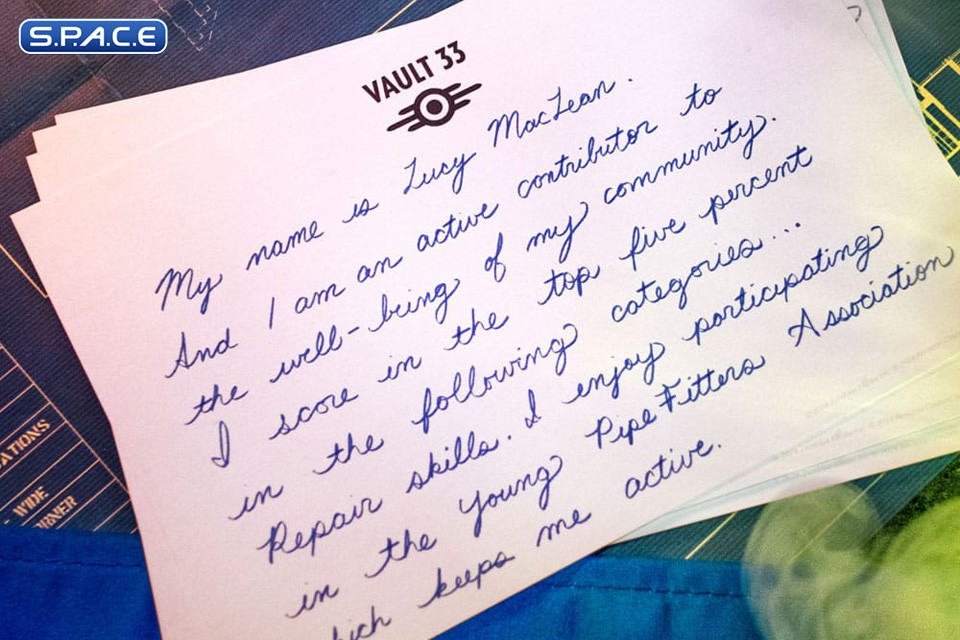 S.P.A.C.E
VAULT 33
My name is Lucy MacLean.
And I am an active contributor to
the well-being of my community.
I score in the top five percent
in the following categories...
Repair skills. I enjoy participating
in the Young PipeFitters Association
which keeps me active.
ATIONS
WIDE
ORNER